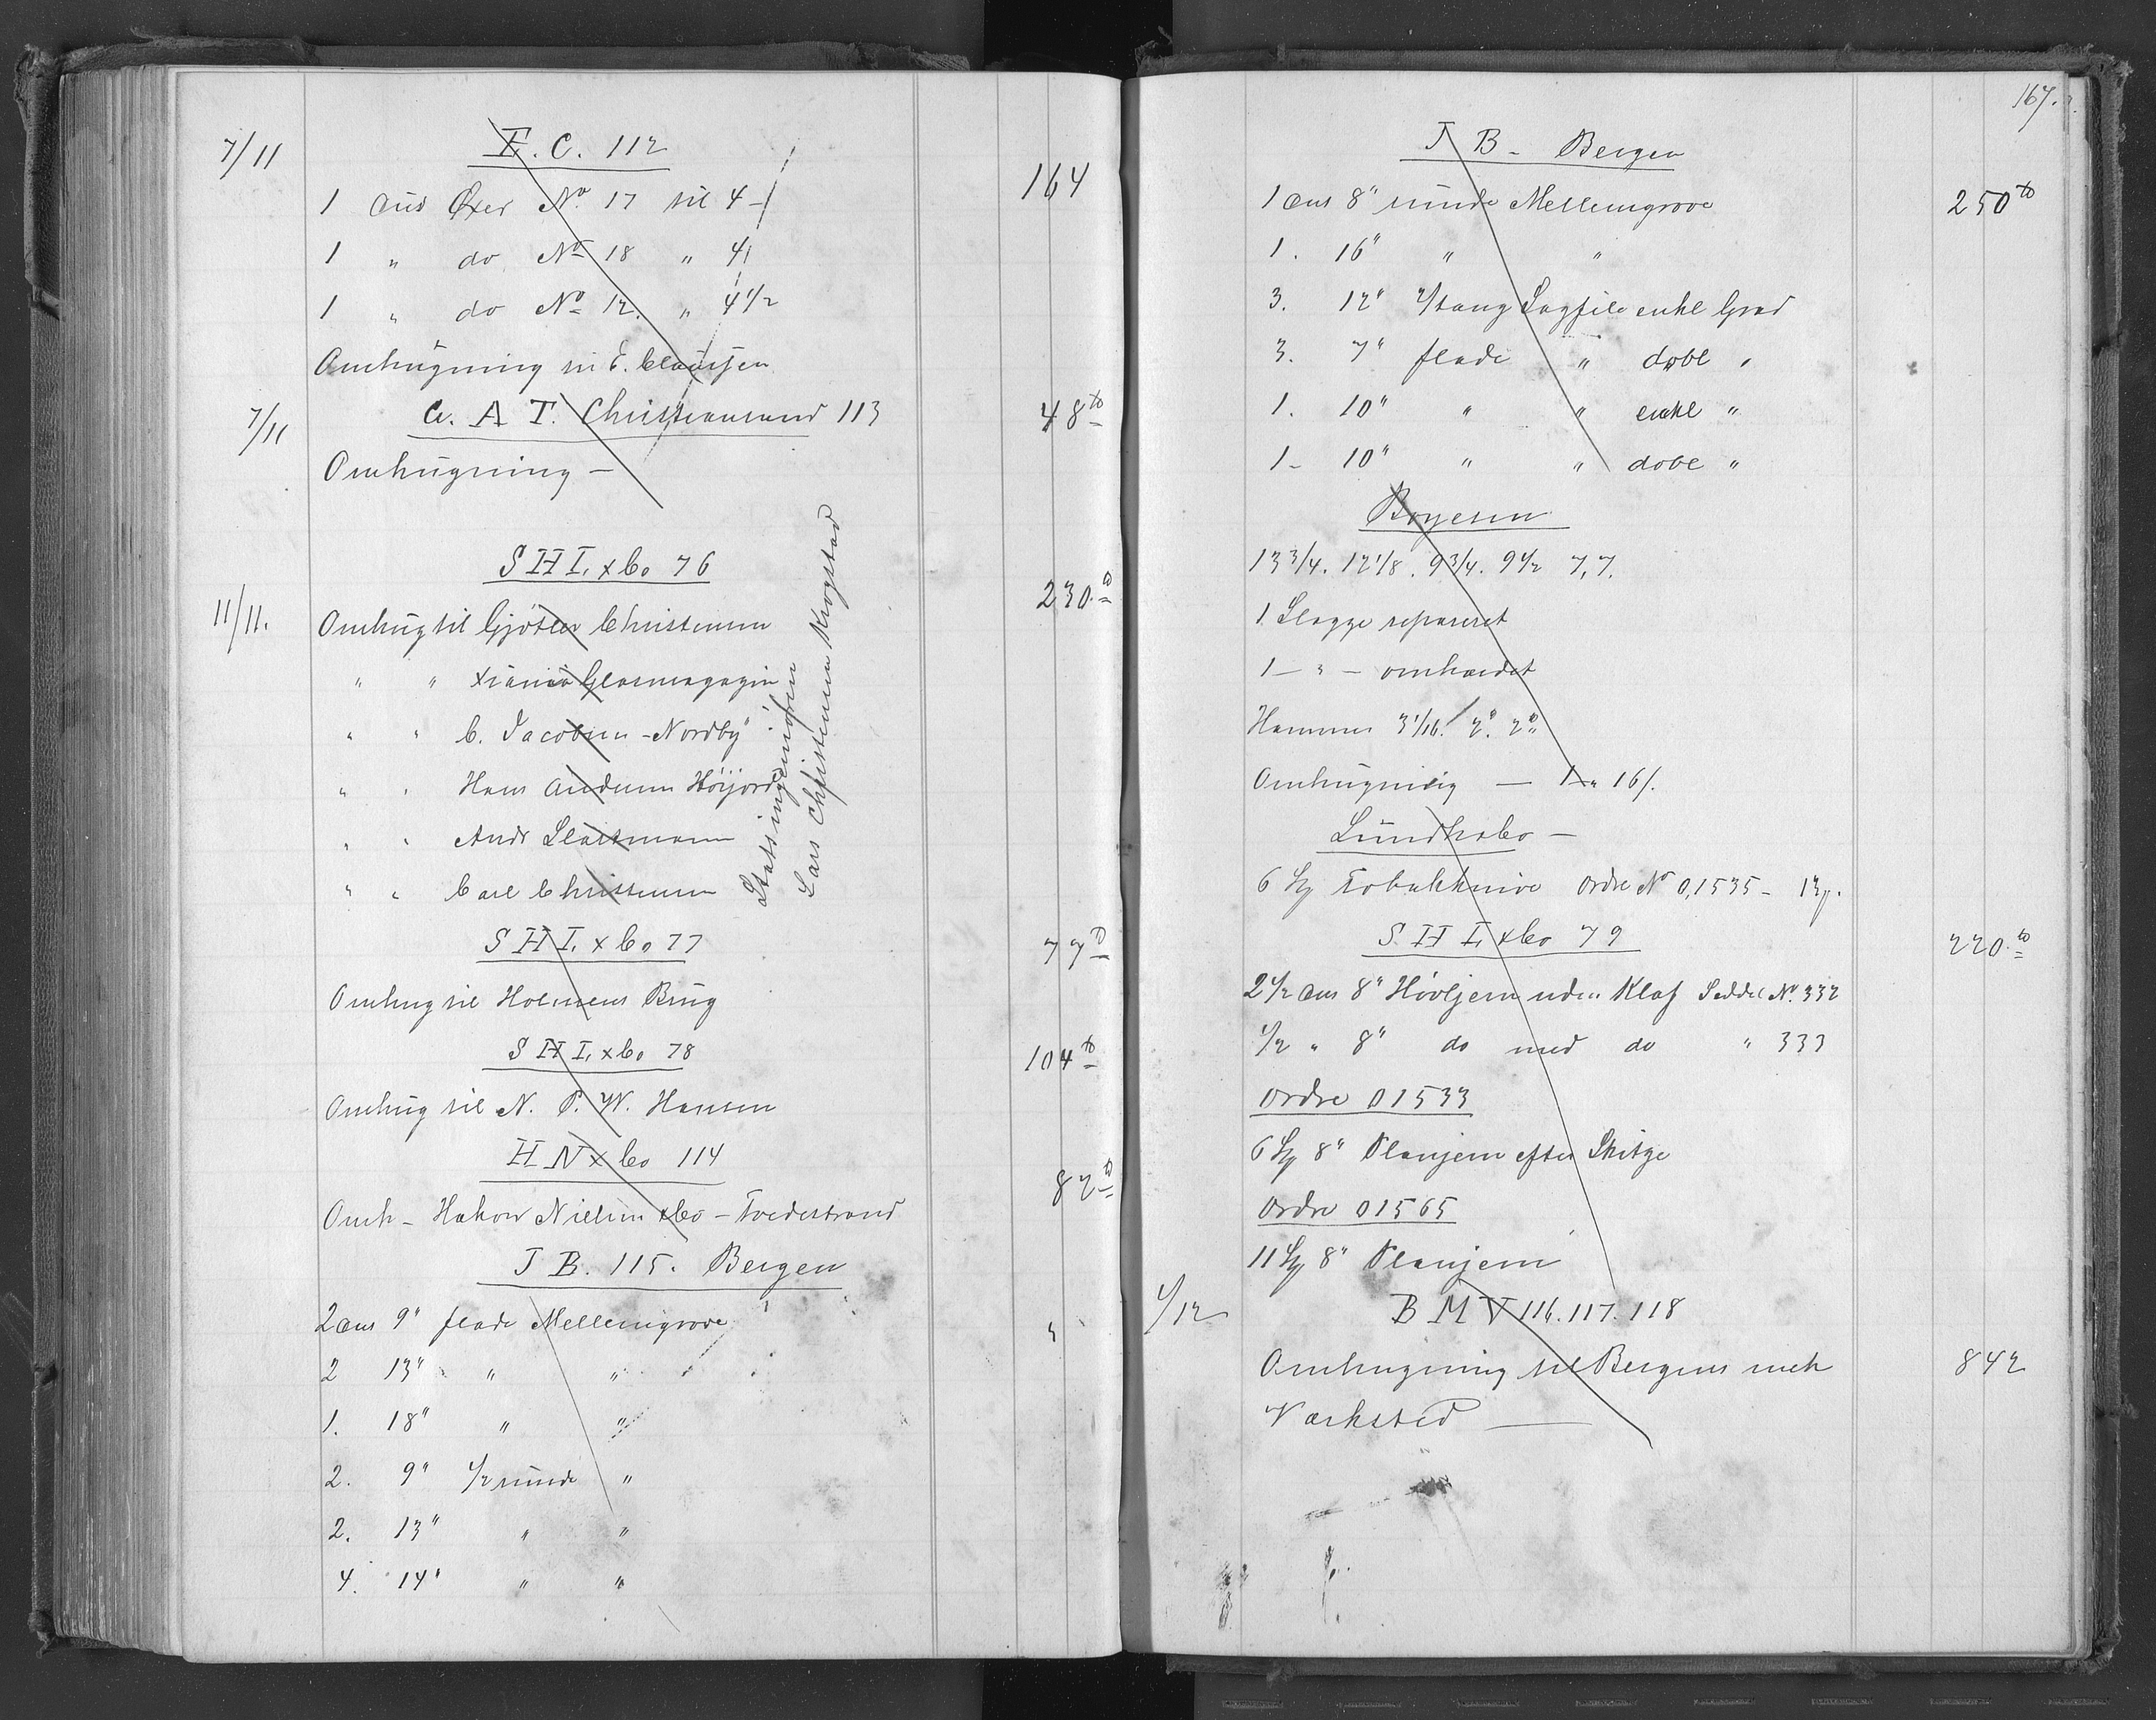 7/11
E. C. 112
164
1 dus Øxer No. 17 til 4 -
1 " do No 18 " 4
1 " do No 12. " 4 1/2
Omhugning til E. Claussen
7/11
C. A T. Christiansand 113
48 ½
Omhugning -
S H L x Co 76
11/11.
Omhug til Gjøtler Christensen
230.
" " Xiania Glasmagazin
" " C. Jacobsen - Nordby
" " Hans Andersen Höijord
" " Andr
" " Carl Christensen
Statsingeniøren
Lars Christensen Krogstad
S H L x Co 77
77
Omhug til Holmens Brug
S H L x Co 78
104
Omhug til N. P. W. Hansen
H N x Co 114
82
Omh - Hakon Nielsen x Co - Tvedestrand
J B. 115. Bergen
2 dus 9" flade Mellemgrove
2 13" " "
1. 18" " "
2. 9" 1/2 runde "
2. 13" " "
4. 14" " "
167.
J B - Bergen
1 dus 8" runde Mellemgrove
250
1. 16" " "
3. 12" Sagfile enkl Grad
3. 7" flade " dobl "
1. 10" " " enkl "
1 - 10" " " dobl "
Boyesen
13 3/4. 12 1/8. 9 3/4. 9 1/2 7, 7.
1 Slegge reparert
1 - " - omhærdet
Hammer 3 1/16. 2". 2"
Omhugning — 1 " 16/.
Lund x Co -
6 St Tobakknive Ordre No 0,1535 -
S. H L x Co 79
220.
2 1/2 dus 8" Høvljern uden Klaf Seddel No. 332
1/2 " 8" do med do " 333
Ordre 01533
6 St 8" Planjern efter Skitze
Ordre 01565
11 St 8" Planjern
1/12
B M V 116. 117. 118
Omhugning til Bergens mek
842
Værksted —